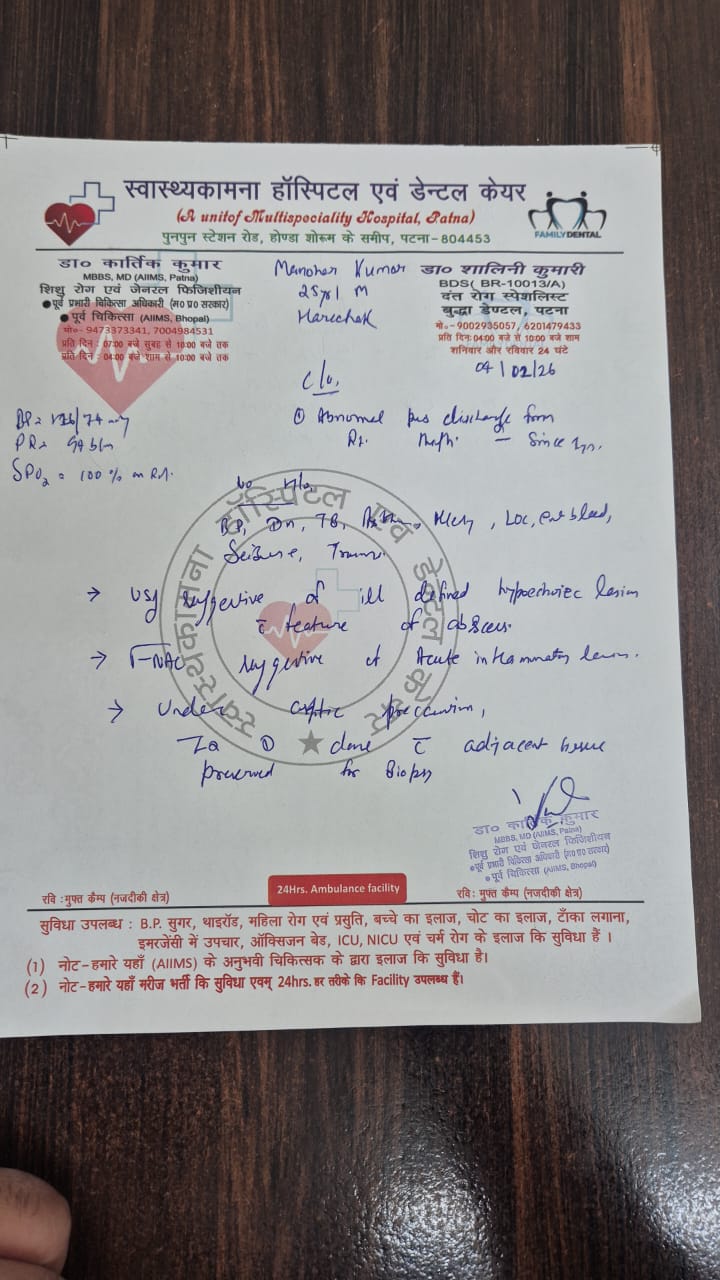 स्वास्थ्यकामना हॉस्पिटल एवं डेन्टल केयर
(A unitof Multispeciality Hospital, Patna)
पुनपुन स्टेशन रोड, होण्डा शोरूम के समीप, पटना-804453
FAMILYDENTAL
डा० कार्तिक कुमार
MBBS, MD (AIIMS, Patna)
शिशु रोग एवं जेनरल फिजिशीयन
●पूर्व प्रभारी चिकित्सा अधिकारी (म०प्र० सरकार)
● पूर्व चिकित्सा (AIIMS, Bhopal)
मो०- 9473373341, 7004984531
प्रति दिन : 07:00 बजे सुबह से 10:00 बजे तक
प्रति दिन : 04:00 बजे शाम से 10:00 बजे तक
Manohar Kumar
25yr / M
डा० शालिनी कुमारी
BDS( BR-10013/A)
दंत रोग स्पेशलिस्ट
बुद्धा डेण्टल, पटना
मो०-9002935057, 6201479433
प्रति दिन: 04:00 बजे से 10:00 बजे शाम
शनिवार और रविवार 24 घंटे
04/02/26
C/o,
① Abnormal pus discharge form
Rt. - Since
BP=
PR=
SPO₂ = 100 % on RA.
No H/o
BP, Dm, TB, LOC,
Seizure,
→ USG suggestive of ill defined hypoechoiec lesion
c̄ feature of abscess.
→ FNAC suggestive of Acute inflammatory
→ Under precaution,
done c̄ adjacent tissue
preserved for Biopsy
स्वास्थ्यकामना हॉस्पिटल एवं डेन्टल केयर
डा० कार्तिक कुमार
MBBS, MD (AIIMS, Patna)
शिशु रोग एवं जेनरल फिजिशीयन
●पूर्व प्रभारी चिकित्सा अधिकारी (म०प्र० सरकार)
● पूर्व चिकित्सा (AIIMS, Bhopal)
रवि : मुफ्त कैम्प (नजदीकी क्षेत्र)
24Hrs. Ambulance facility
रवि : मुफ्त कैम्प (नजदीकी क्षेत्र)
सुविधा उपलब्ध : B.P. सुगर, थाइरॉड, महिला रोग एवं प्रसुति, बच्चे का इलाज, चोट का इलाज, टाँका लगाना,
इमरजेंसी में उपचार, ऑक्सिजन बेड, ICU, NICU एवं चर्म रोग के इलाज कि सुविधा हैं ।
(1) नोट-हमारे यहाँ (AIIMS) के अनुभवी चिकित्सक के द्वारा इलाज कि सुविधा है।
(2) नोट-हमारे यहाँ मरीज भर्ती कि सुविधा एवम् 24hrs. हर तरीके कि Facility उपलब्ध हैं।